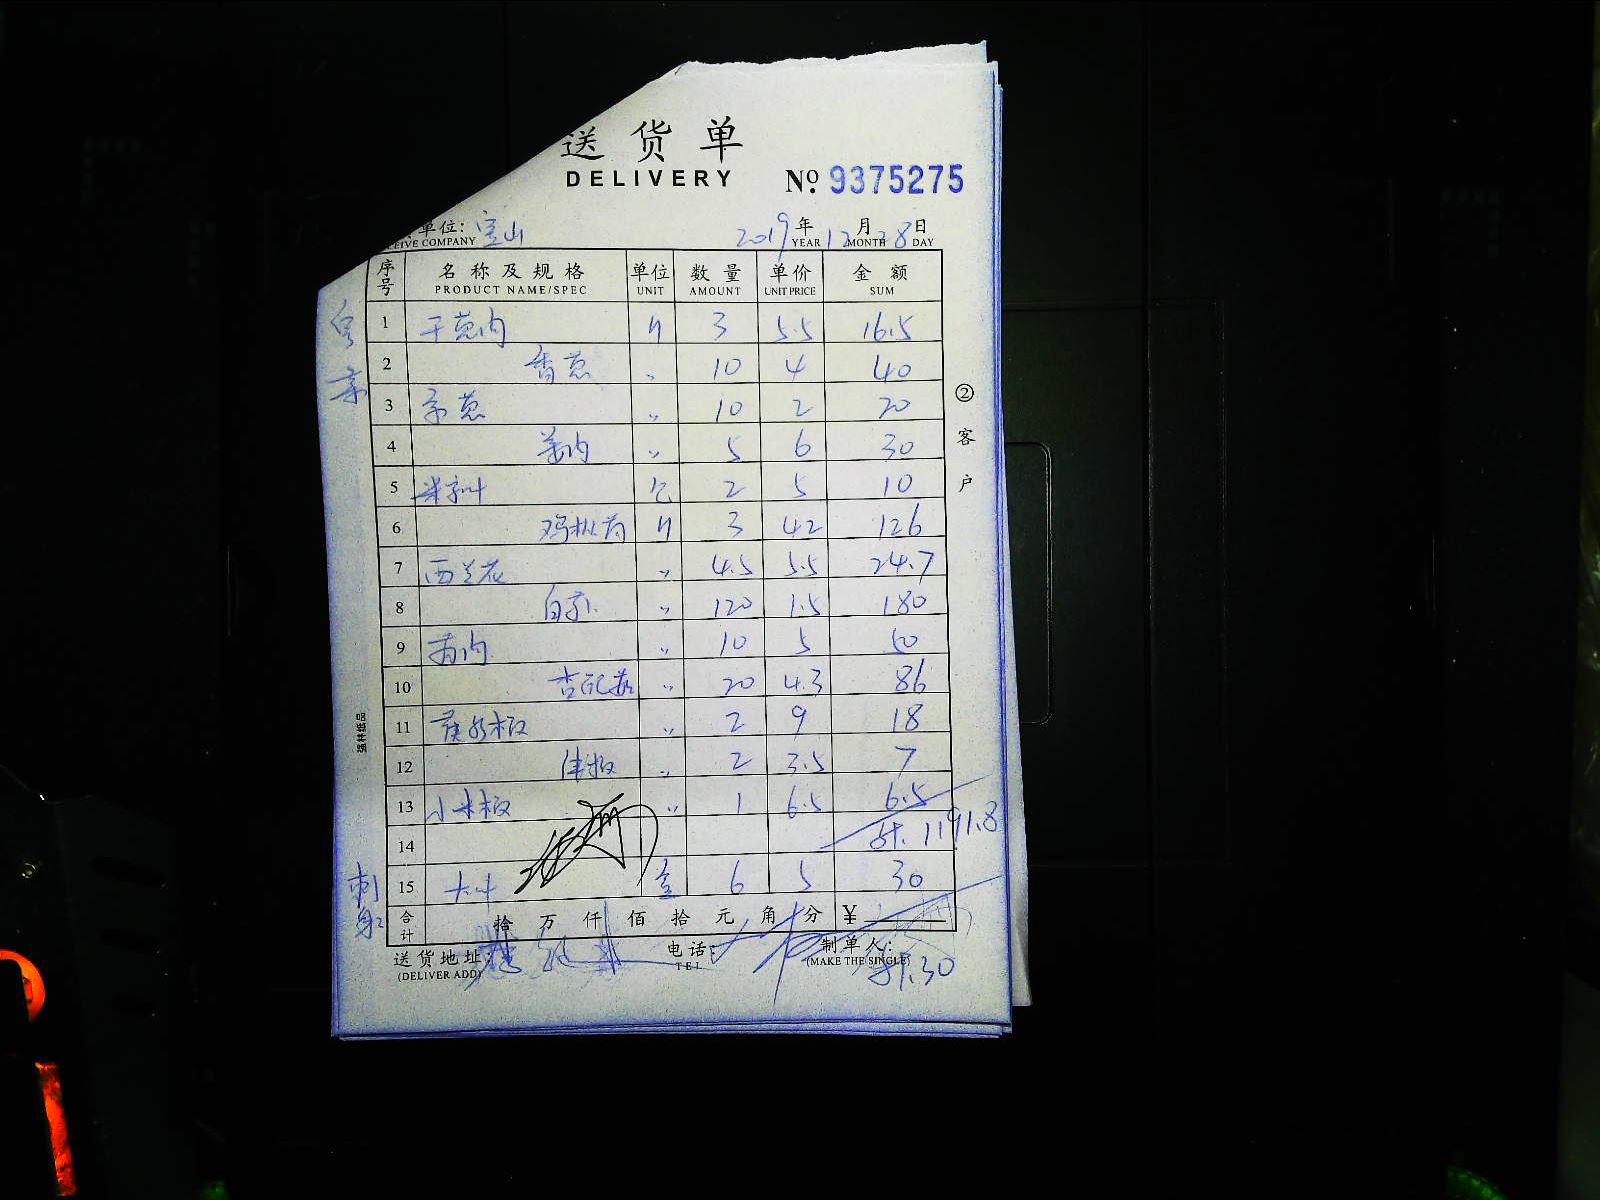 送货单
DELIVERY
No. 9375275
单位: 宝山
EIVE COMPANY
2019年12月28日
YEAR MONTH DAY
序号 名称及规格 单位 数量 单价 金额
PRODUCT NAME/SPEC UNIT AMOUNT UNIT PRICE SUM
1 干葱肉 斤 3 5.5 16.5
2 香葱 〃 10 4 40
3 京葱 〃 10 2 20
4 姜肉 〃 5 6 30
5 2 5 10
6 鸡枞菇 斤 3 42 126
7 西兰花 〃 4.5 5.5 24.7
8 〃 120 1.5 180
9 〃 10 5 50
10 杏鲍菇 〃 20 4.3 86
11 〃 2 9 18
12 〃 2 3.5 7
13 小米椒 〃 1 6.5 6.5
14 计. 1191.8
15 大叶 盒 6 5 30
合计 拾 万 仟 佰 拾 元 角 分 ¥
送货地址: 电话: 制单人:
(DELIVER ADD) TEL (MAKE THE SINGLE)
计.30
②客户
强林纸品
刺身